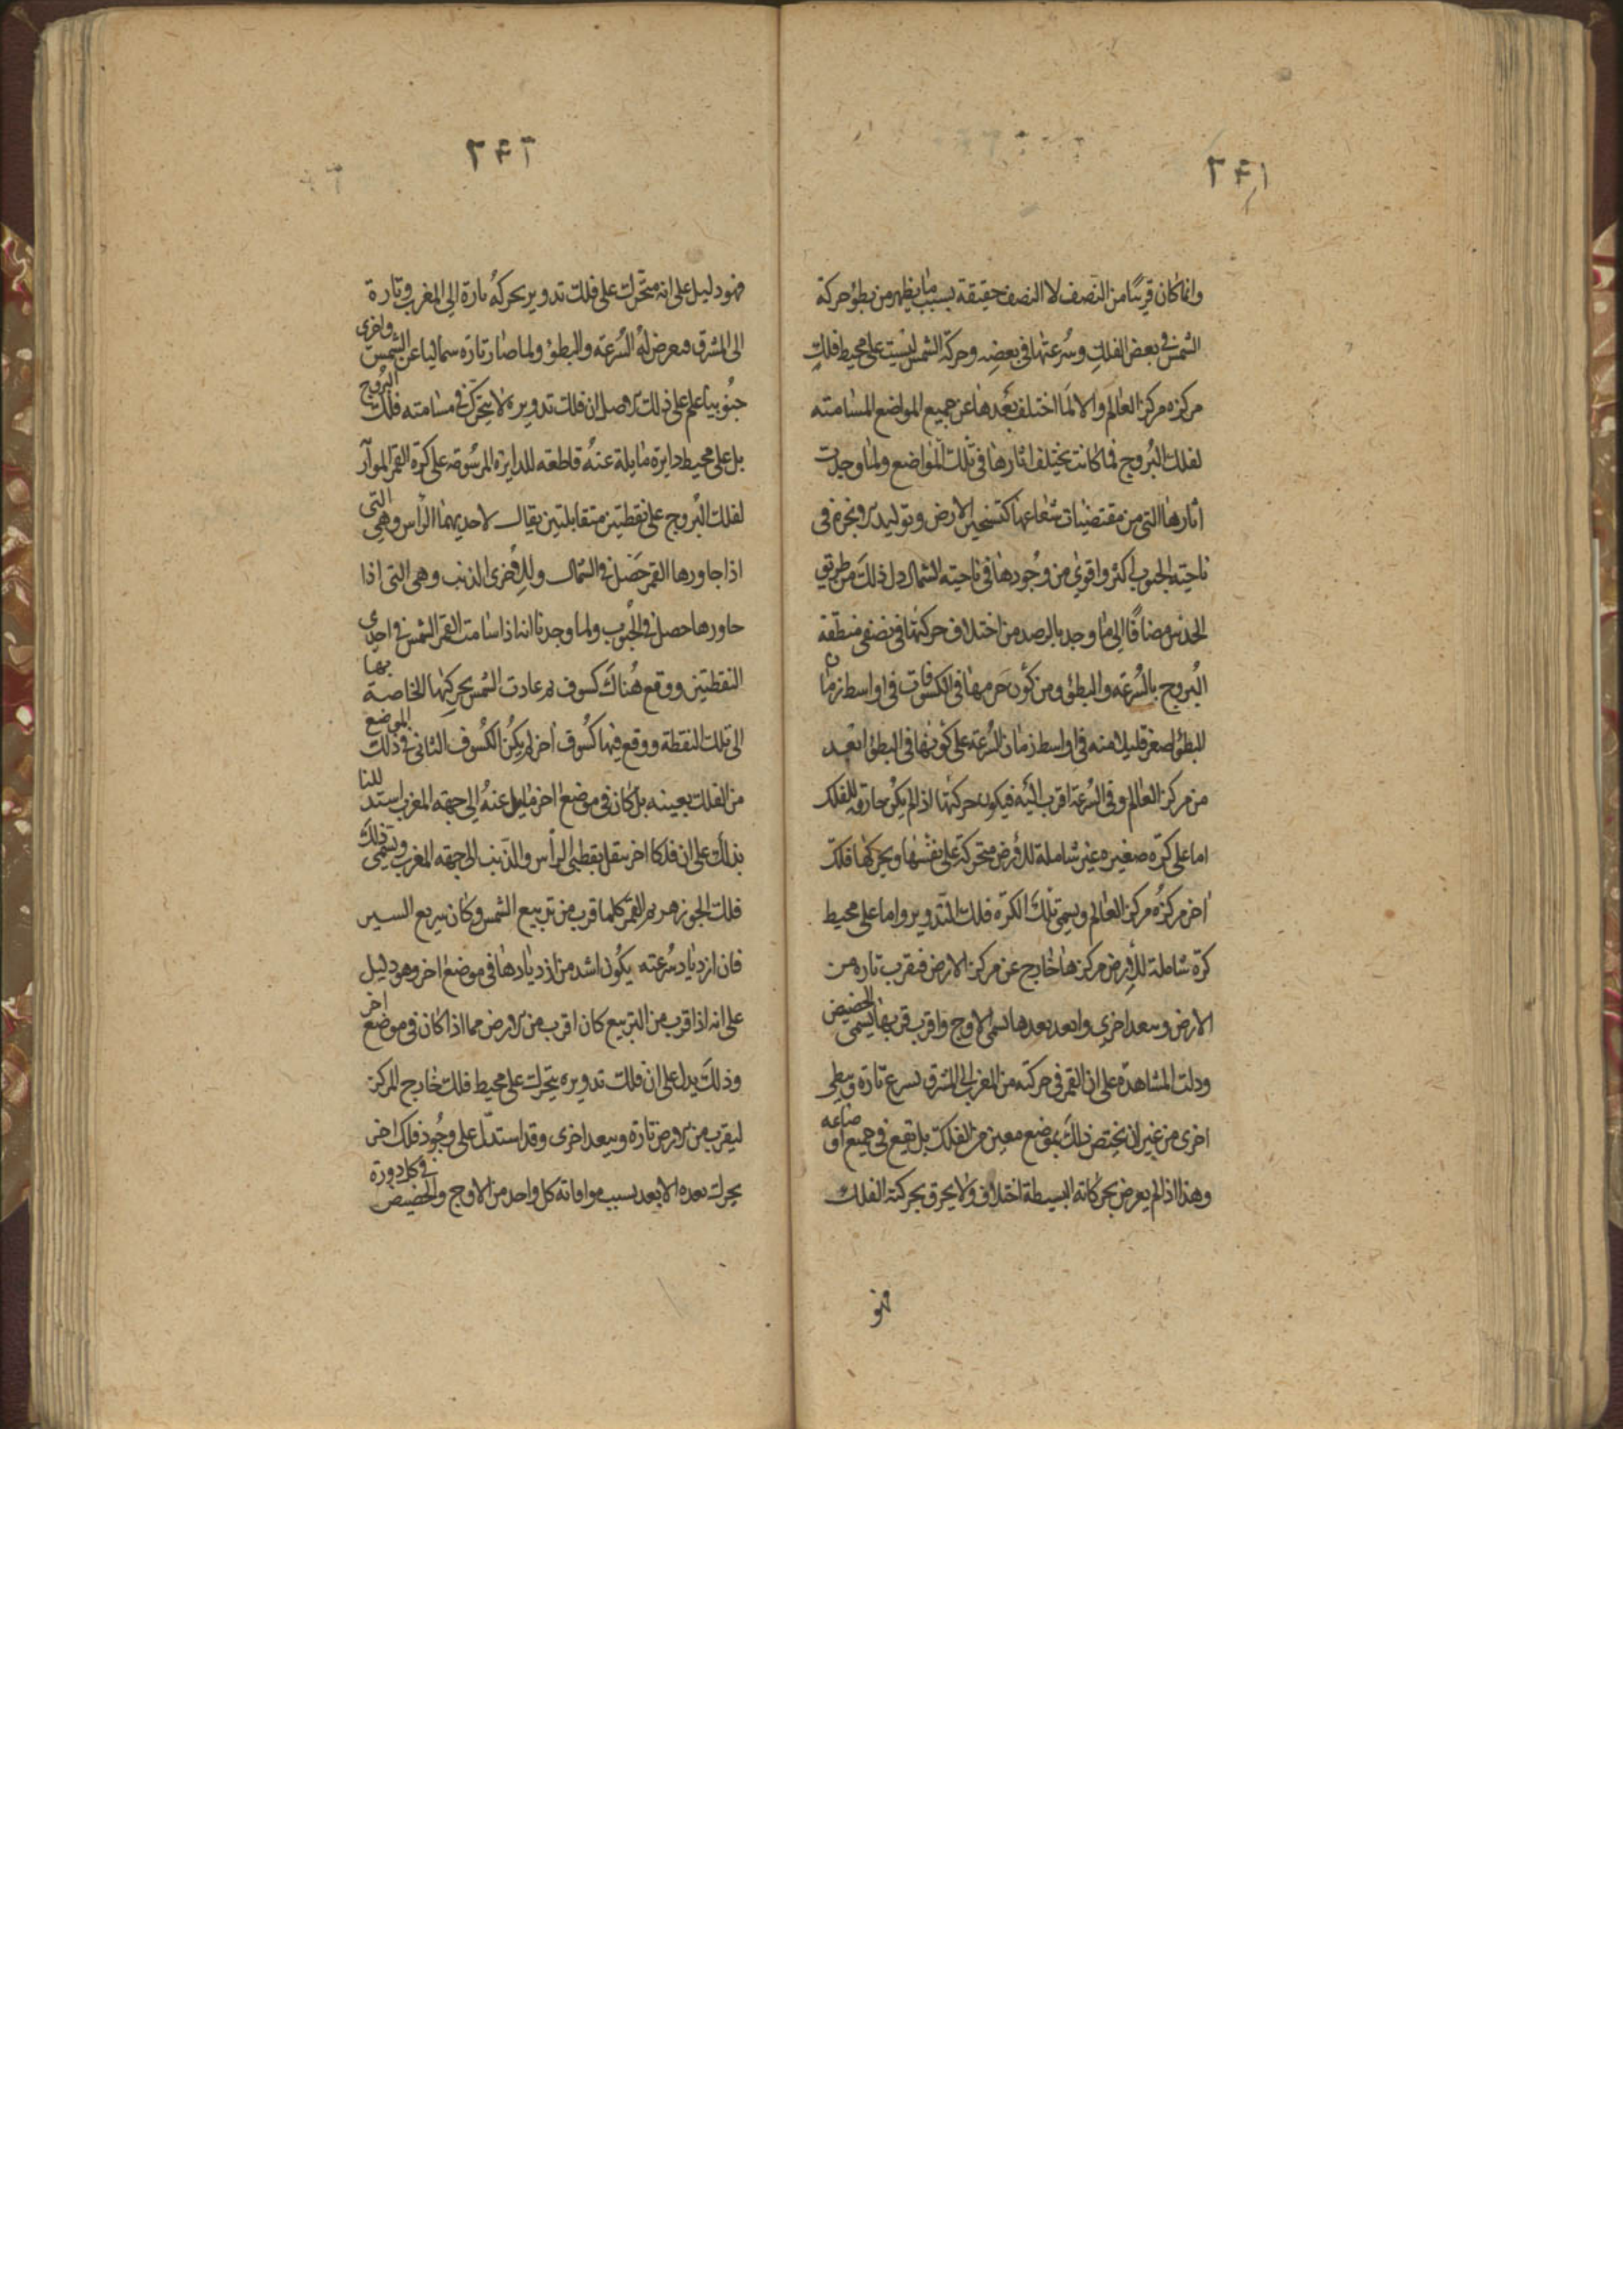 ٢٤١
وانما كان قريبًا من النصف لا النصف حقيقة بسبب ما يظهر من بطؤ حركة
الشمس في بعض الفلك وسُرعتها في بعضه وحركة الشمس ليست على محيط فلك
مركزه مركز العالم والا لما اختلف بُعدها عن جميع المواضع المسامته
لفلك البُروج فما كانت يختلف اثارها في تلك المواضع ولما وجدت
اثارها التي من مقتضيات شعاعها كتسخين الارض وتوليد الابخرة في
ناحيته الجنوب اكثر واقوى من وجودها في ناحيته الشمال دل ذلك من طريق
الحدس مضافًا الى ما وجد بالرصد من اختلاف حركتها في نصفى منطقة
البُروج بالسُرعته والبطؤ ومن كون جرمها في الكسوفات في اواسط زمان
البطؤ اصغر قليلا منه في اواسط زمان السُرعة على كونها في البطؤ ابعد
من مركز العالم وفي السُرعة اقرب اليه فيكون حركتها اذ لم يكن خارقه للفلك
اما على كرّه صغيره غير شاملة للارض متحركة على نفسها ويحركها فلك
اخر مركزُه مركز العالم ويسمى تلك الكرّه فلك التدوير واما على محيط
كرّه شاملة للارض مركزها خارج عن مركز الارض فيقرب تاره من
الارض وببعد اخرى وابعد بعدها يسمى الاوج واقرب قربها يسمى الحضيض
ودلت المشاهدة على ان القمر في حركته من المغرب الى المشرق يسرع تارة ويبطي
اخرى من غير ان يختص ذلك بموضع معين من الفلك بل يقع في جميع اوضاعه
وهذا اذ لم يعرض بحركاته البسيطة اختلاف ولا يحرق بحركته الفلك
فهو
٢٤٢
فهو دليل على انه متحرك على فلك تدوير يحركه تارة الى المغرب وتارة
الى المشرق فيعرض لهُ السُرعته والبطؤ ولما صار تارة شماليا عن الشمس واخرى
جنُوبيا علم على ذلك الاصل ان فلك تدويره لا يتحرك في مسامته فلك البروج
بل على محيط دايرة مايلة عنهُ قاطعه للدايرة المرسُومة على كرّة القمر الموازية
لفلك البُروج على نقطتين متقابلتين يقال لاحديهما الرأس وهي التى
اذا جاورها القمر حَصَل في الشمال وللاخرى الذنب وهي التى اذا
جاورها حصل في الجُنوب ولما وجدنا انه اذا سامت القمر الشمس في احدى
النقطتين ووقع هُناك كسوف ثم عادت الشمس بحركتها الخاصة بها
الى تلك النقطة ووقع فيها كسُوف اخر لم يكن الكسُوف الثانى في ذلك الموضع
من الفلك بعينه بل كان في موضع اخر مايل عنهُ الى جهة المغرب استدللنا
بذلك على ان فلكا اخر ينقل نقطتي الرأس والذنب الى جهه المغرب ويسمى ذلك
فلك الجوزهر ثم القمر كلما قرب من تربيع الشمس وكان سريع السير
فان ازدياد سُرعته يكُون اشد من ازديادها في موضع اخر وهو دليل
على انه اذا قرب من التربيع كان اقرب من الارض مما اذا كان في موضع اخر
وذلك يدل على ان فلك تدويره يتحرك على محيط فلك خارج المركز
ليقرب من الارض تارة ويبعد اخرى وقد استدل على وجُود فلك اخر
يحرك بعده الابعد بسبب موافاته كل واحد من الاوج والحضيض في كل دورة